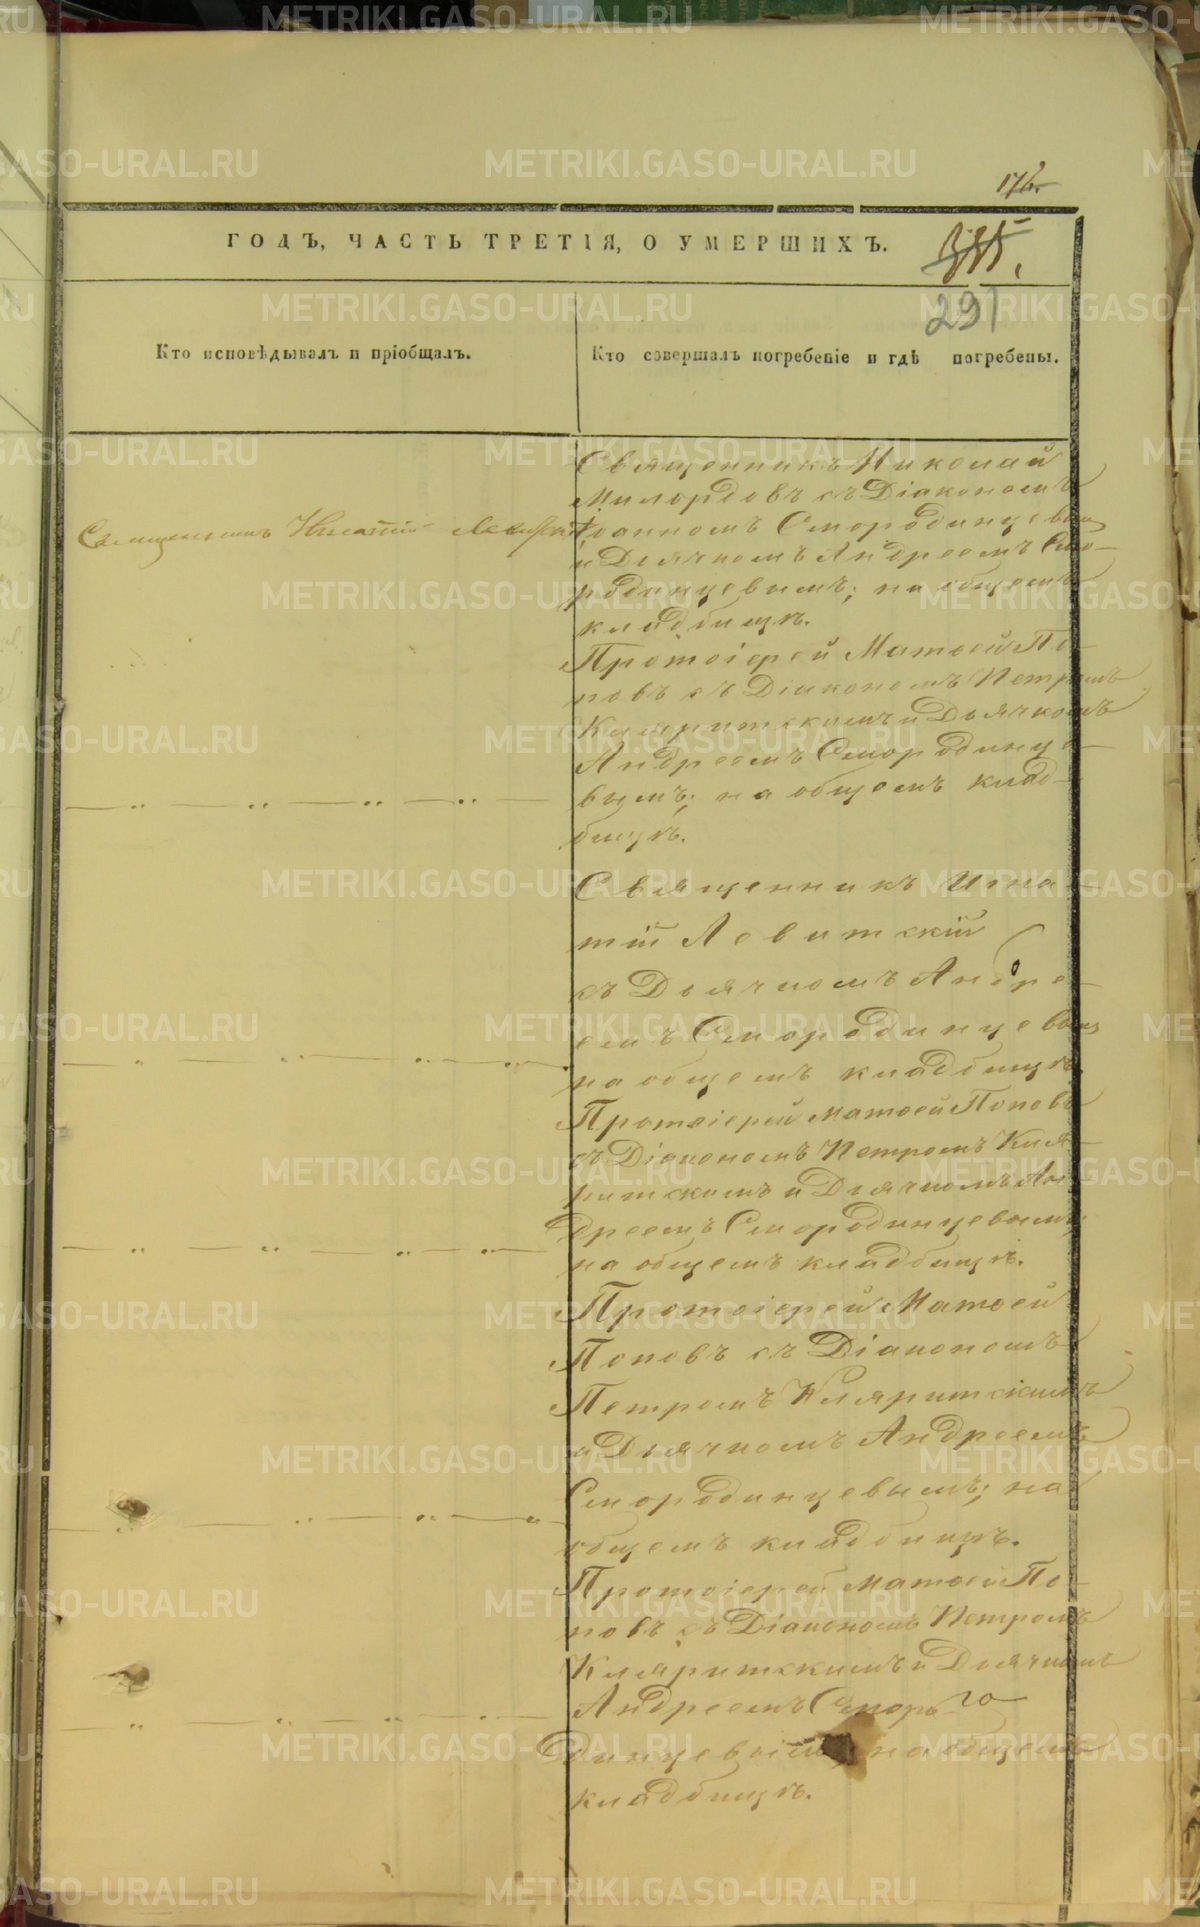 176.
ГОДЪ, ЧАСТЬ ТРЕТІЯ, О УМЕРШИХЪ.
291
Кто исповѣдывалъ и пріобщалъ.
Кто совершалъ погребеніе и гдѣ погребены.
Священникъ Николай
Милордовъ съ Діакономъ
Іоанномъ Смородинцевым
и Дьячкомъ Андреемъ Смо-
родинцевымъ; на общемъ
кладбищѣ.
Священникъ Игнатій
Протоіерей Матѳей По-
повъ съ Діакономъ Петромъ
Кляритскимъ и Дьячкомъ
Андреемъ Смородинце-
вымъ; на общемъ клад-
бищѣ.
— „ — „ — „ — „ —
Священникъ Игна-
тій Левитскій
съ Дьячкомъ Андре-
емъ Смородинцевым
на общемъ кладбищѣ.
— „ — „ — „ — „
Протоіерей Матѳей Поповъ
съ Діакономъ Петромъ Кля-
ритскимъ и Дьячкомъ Ан-
дреемъ Смородинцевымъ
на общемъ кладбищѣ.
— „ — „ — „ — „ —
Протоіерей Матѳей
Поповъ съ Діакономъ
Петромъ Кляритскимъ
и Дьячкомъ Андреемъ
Смородинцевымъ; на
общемъ кладбищѣ.
— „ — „ — „ — „
Протоіерей Матѳей По-
повъ съ Діакономъ Петромъ
Кляритскимъ и Дьячкомъ
Андреемъ Сморо-
динцевымъ на общемъ
кладбищѣ.
— „ — „ — „ — „ —
METRIKI.GASO-URAL.RU